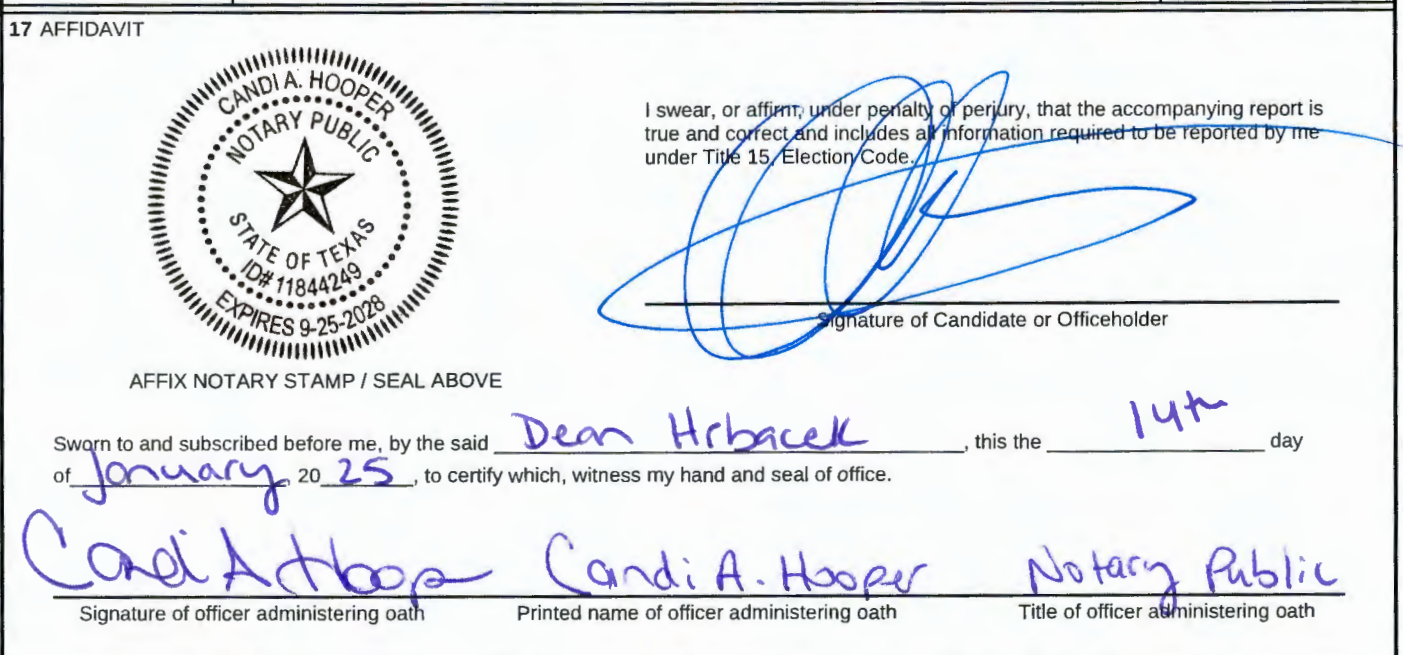 17 AFFIDAVIT
CANDI A. HOOPER
NOTARY PUBLIC
STATE OF TEXAS
ID# 11844249
EXPIRES 9-25-2028
AFFIX NOTARY STAMP / SEAL ABOVE
I swear, or affirm, under penalty of perjury, that the accompanying report is
true and correct and includes all information required to be reported by me
under Title 15, Election Code.
Signature of Candidate or Officeholder
Sworn to and subscribed before me, by the said Dean Hrbacek, this the 14th day
of January, 20 25, to certify which, witness my hand and seal of office.
Candi A Hoop Candi A. Hooper Notary Public
Signature of officer administering oath Printed name of officer administering oath Title of officer administering oath